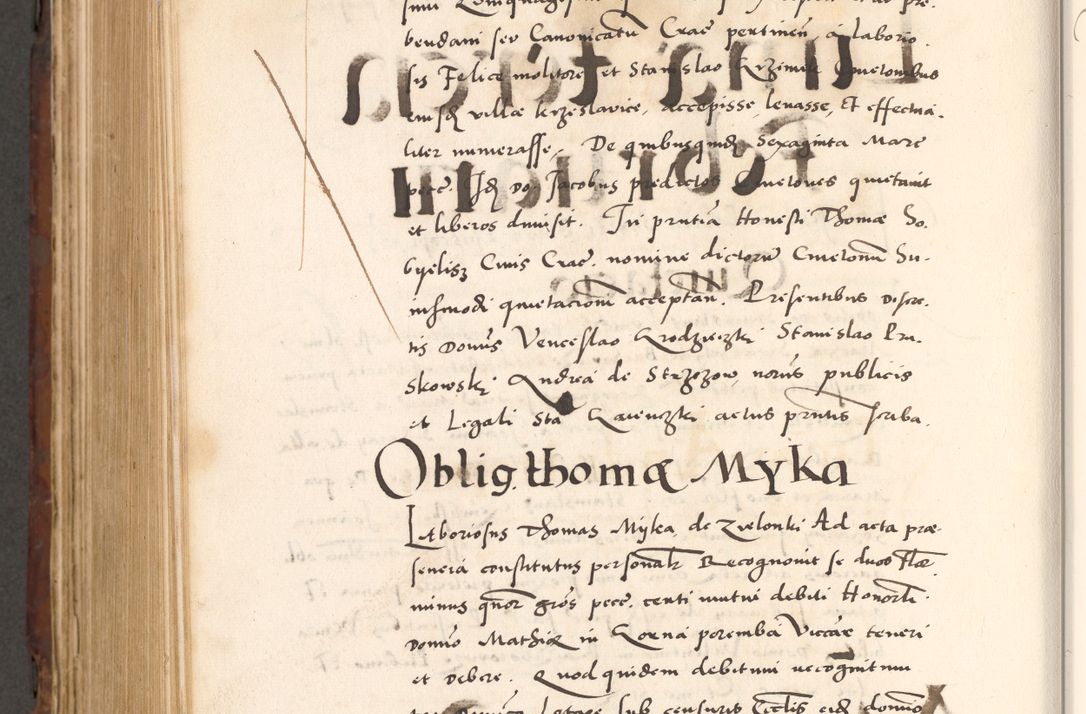 bendam seu Canonicatū Crac̄ pertineń. á laborio.
sis Felice molitore et Stanislao Krzemik Cmetonibus
eiusdē villæ krzeslavice, accepisse, levasse, Et effectua.
liter numerasse. De quibusquidē Sexaginta Marc̄
pecc̄. Idē Do. Jacobus predictos Cmetones quietavit
et liberos dimisit. In prntiā Honesti Thomæ So.
byelisz Civis Crac̄. nomine dictorū Cmetonū Hu-
iusmodi quietacionem acceptań. Presentibus Discre.
tis Domīs Venceslao Grodziczki Stanislao Pru-
skowski Andrea de Strzozow notariis publicis
et Legali Sta actus prntis scriba.
Oblig. thomæ Myka
Laboriosus Thomas Myka de Zielonki Ad acta præ-
sencia constitutus personalr̄ Recognovit se duos flor̄
minus quor̄ gros̄ pecc̄. centi mutui debiti Honorli.
Domīo Mathiæ in Gorna poremba Viccar̄ teneri
et Debere. Quod quidem debitum recognitum
sub censuris Ecclīs eidē domīo